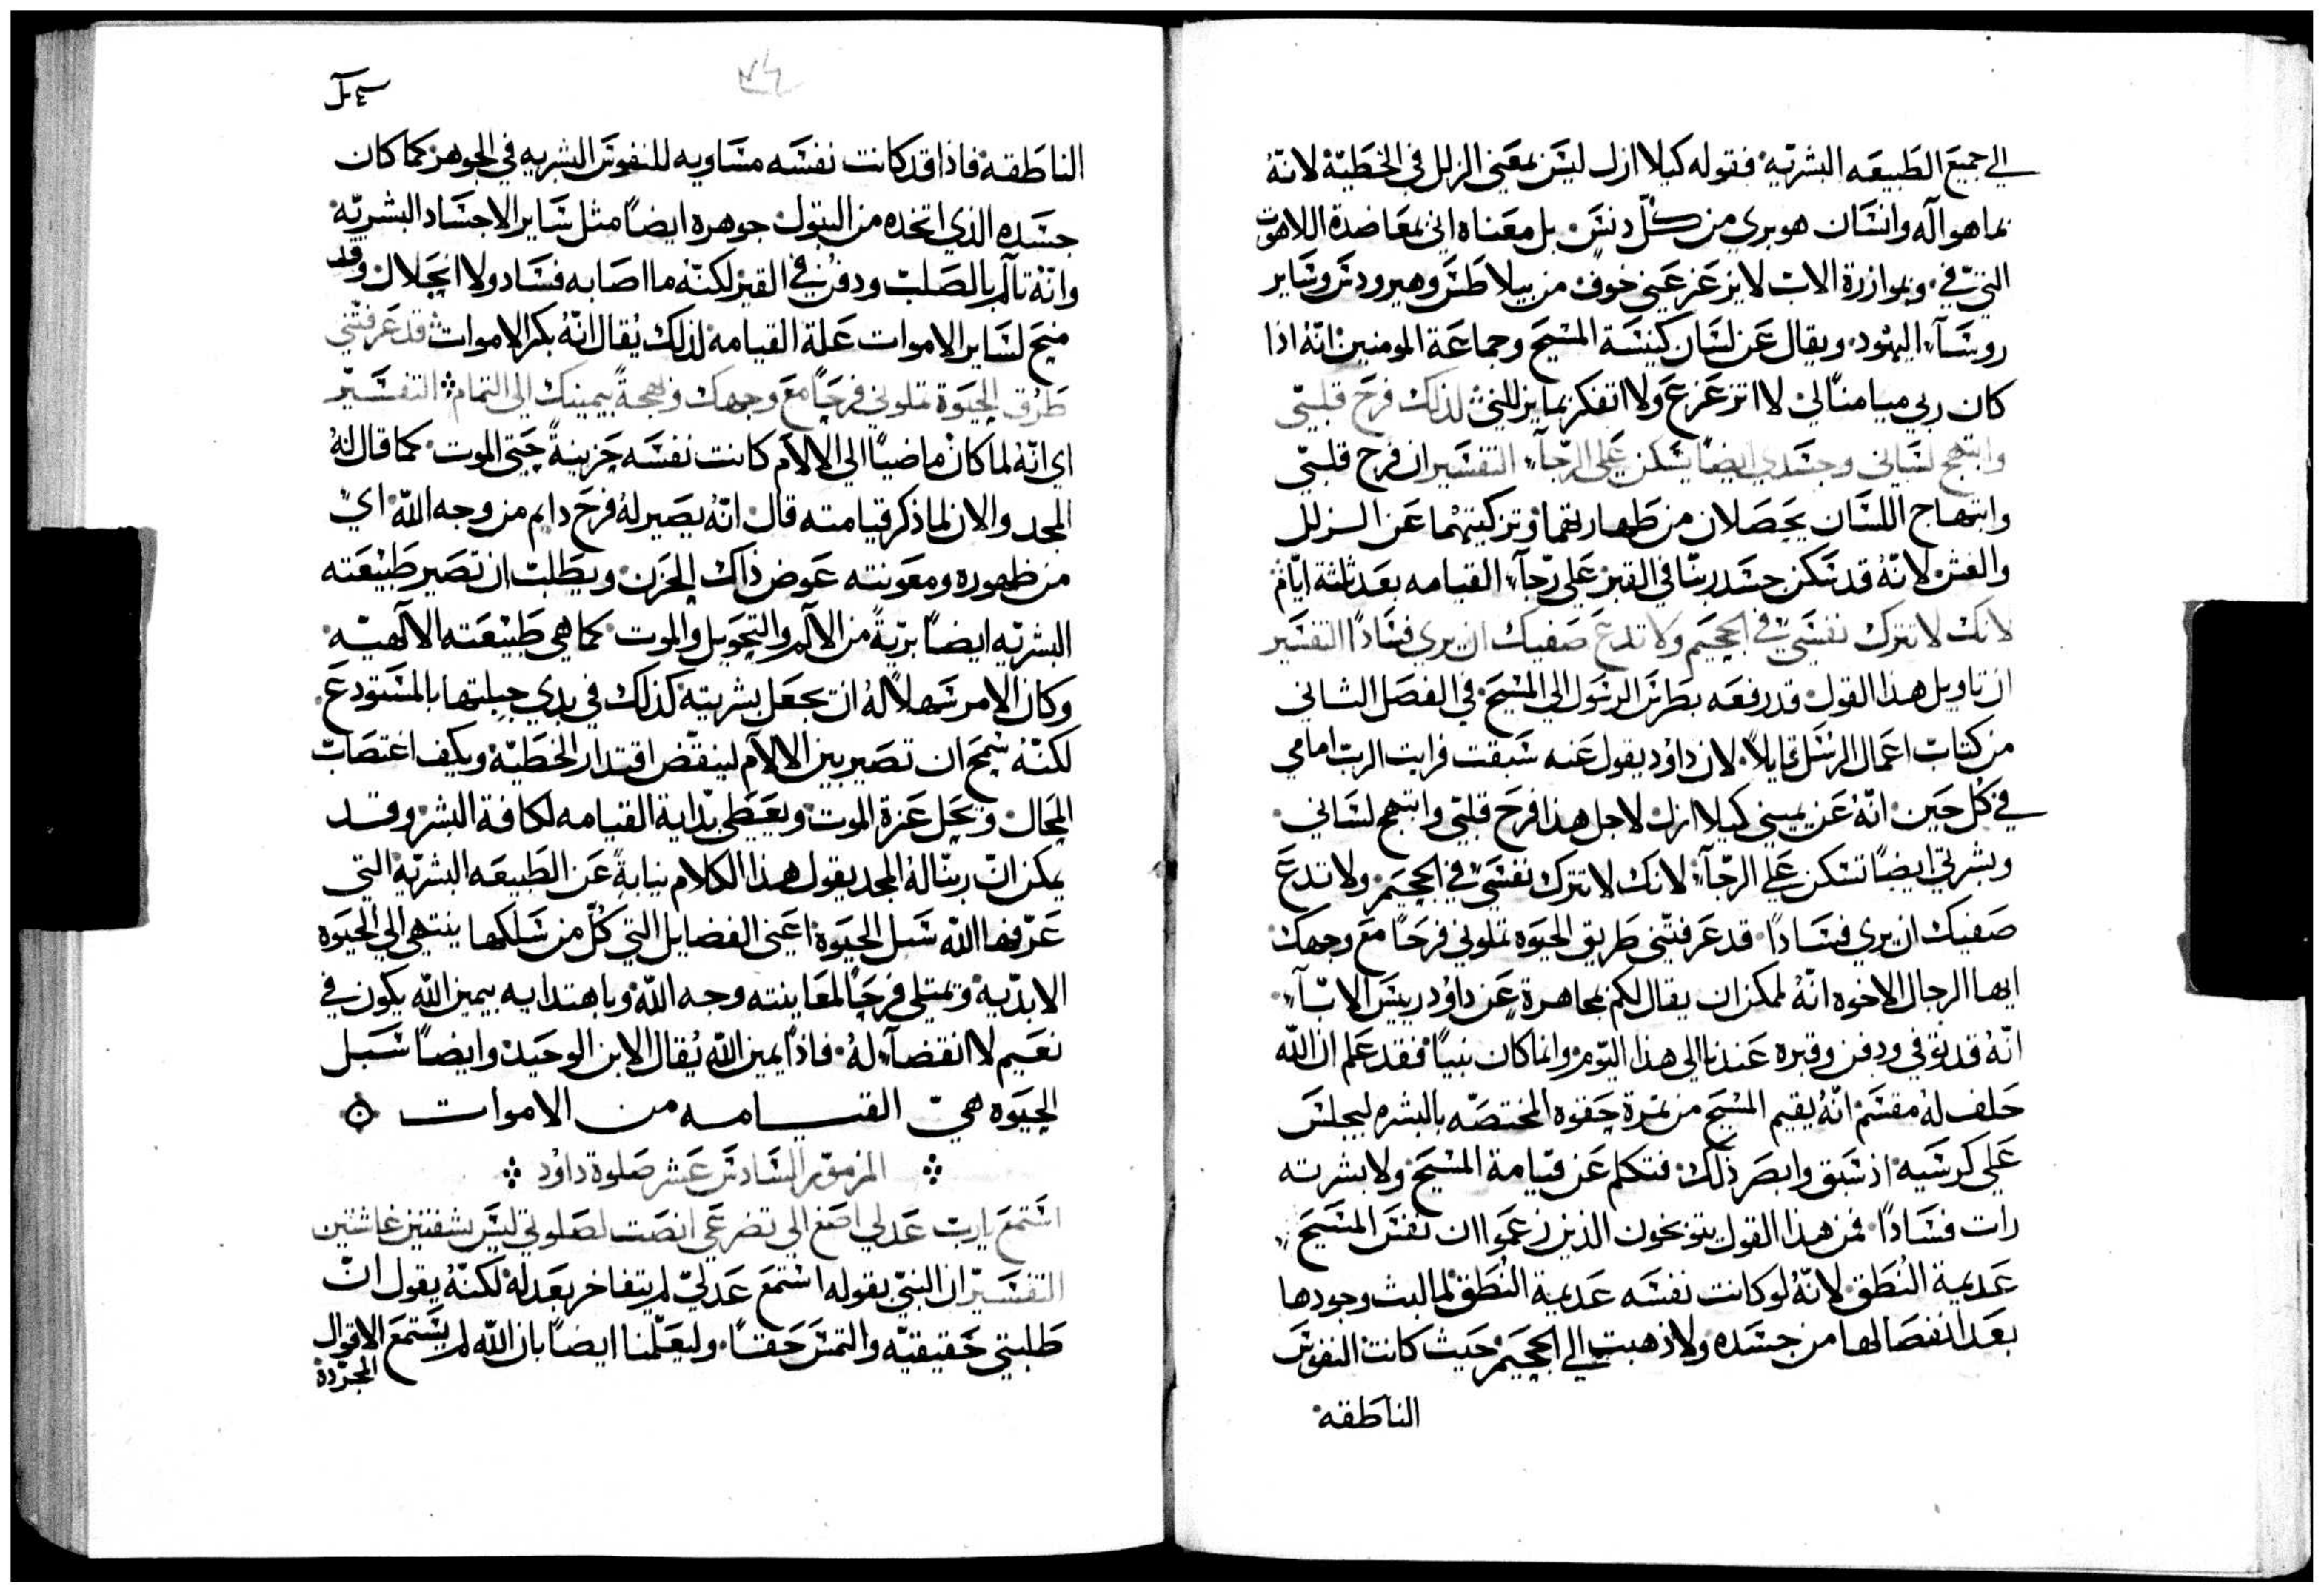 الي جميع الطبيعه البشريّه فقوله كيلا ازل ليس بمعني الزلل في الخطيّة لانهُ
بما هو اله وانسان هو بري من كلّ دنس بل معناه اني بمعاضدة اللاهوت
التي فيّ وبموازرة الاب لا يزعزعني خوف من بيلاطس وهيرودس وساير
روسآء اليهود ويقال عن لسان كنيسة المسيح وجماعة المومنين انهُ اذا
كان ربي ميامنًا لي لا اتزعزع ولا اتفكر بما يزللني لذلك فرح قلبي
وابتهج لساني وجسدي ايضًا يسكن علي الرجآء التفسير ان فرح قلبي
وابتهاج اللسان يحصلان من طهارتهما وتزكيتهما عن الزلل
والغش لانهُ قد سكن جسد ربنا في القبر علي رجآء القيامه بعد ثلثة ايّام
لانك لا تترك نفسي في الجحيم ولا تدع صفيك ان يري فسادًا التفسير
ان تاويل هذا القول قد رفعه بطرس الرسول الي المسيح في الفصل الثاني
من كتاب اعمال الرسل قايلاً لان داود يقول عنه سبقت فرايت الرب امامي
في كل حين انهُ عن يميني كيلا ازل لاجل هذا فرح قلبي وابتهج لساني
وبشرتي ايضًا تسكن علي الرجآء لانك لا تترك نفسي في الجحيم ولا تدع
صفيك ان يري فسادًا قد عرفتني طريق الحيوه تملوني فرحًا مع وجهك
ايها الرجال الاخوه انهُ لممكن ان يقال لكم بمجاهرة عن داوُد رييس الابآء
انهُ قد توفي ودفن وقبره عندنا الي هذا اليوم وانما كان نبيًا فقد علم ان الله
حلف لهُ مقسم انهُ يقيم المسيح من ثمرة حقوه المختصّه بالبشره ليجلس
علي كرسيه اذ سبق وابصر ذلك فتكلم عن قيامة المسيح ولا بشرته
رات فسادًا فمن هذا القول يتوبخون الذين زعموا ان نفس المسيح
عديمة النطق لانهُ لو كانت نفسه عديمة النطق لما لبث وجودها
بعد انفصالها من جسده ولا ذهبت الي الجحيم حيث كانت النفوس
الناطقه
الناطقه فاذا قد كانت نفسه مساويه للنفوس البشريه في الجوهر كما كان
جسده الذي اتخذه من البتول جوهره ايضًا مثل ساير الاجساد البشريّه
وانهُ تألم بالصلب ودفن في القبر لكنهُ ما اصابه فساد ولا انحلال وقد
منح لساير الاموات علة القيامه لذلك يُقال انهُ بكر الاموات قد عرفتني
طرق الحيوة تملوني فرحًا مع وجهك وبهجةً بيمينك الي التمام التفسير
اي انهُ لما كان ماضيًا الي الالام كانت نفسه حزينةً حتي الموت كما قال لهُ
المجد والان لما ذكر قيامته قال انهُ يصير لهُ فرح دايم من وجه الله اي
من ظهوره ومعونته عوض ذاك الحزن ويطلب ان تصير طبيعته
البشريه ايضًا بريةً من الالم والتحويل والموت كما هي طبيعته الالهيه
وكان الامر سهلاً لهُ ان يجعل بشريته كذلك في بدي جبلتها بالمستودع
لكنهُ سمح ان تصير بين الالام لينقض اقتدار الخطيّة ويكف اغتصاب
المحال ويحل عزة الموت ويعطي بداية القيامه لكافة البشر وقد
يمكن انّ ربنا لهُ المجد يقول هذا الكلام نيابةً عن الطبيعه البشريه التي
عرّفها الله سبل الحيوة اعني الفضايل التي كلّ من سلكها ينتهي الي الحيوه
الابديّة وتمتلي فرحًا لمعاينته وجه الله وباهتدايه بيمين الله يكون في
نعيم لا انقضآء لهُ فاذًا يمين الله يُقال الابن الوحيد وايضًا سبل
الحيوه هيّ القيامه من الاموات
المزمور السادس عشر صلوة داوُد
استمع يارب عدلي اصغ الي تضرعي انصت لصلوتي ليس بشفتين غاشتين
التفسير ان النبي بقوله استمع عدلي لم يتفاخر بعدله لكنهُ يقول انّ
طلبتي حقيقيّه والتمس حقًا وليعلّمنا ايضًا بان الله لم يستمع الاقوال
المجرّدة